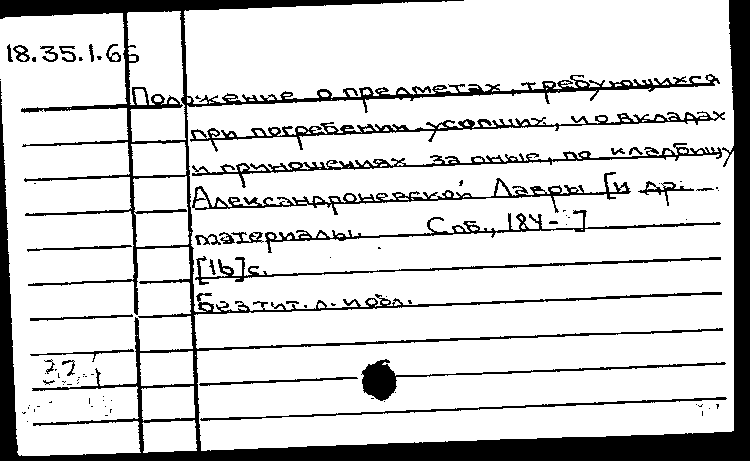 18.35.1.66
Положение о предметах, требующихся
при погребении усопших, и о вкладах
и приношениях за оные, по кладбищу
Александроневской Лавры [и др.
материалы. Спб., 184- ]
[16]с.
Без тит. л. и обл.